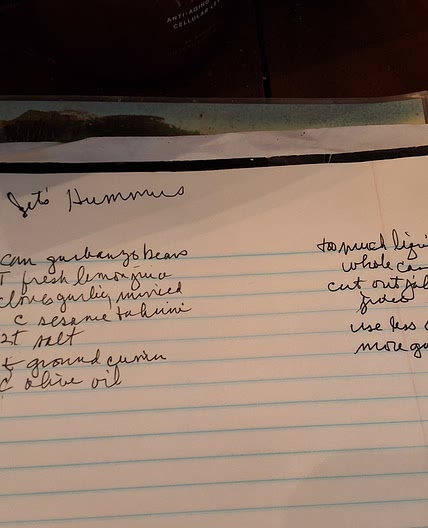 ANTI-AGING
CELLULAR
Hummus
can garbanzo beans
T fresh lemon juice
cloves garlic, minced
C sesame tahini
2t salt
t ground cumin
C olive oil
too much liqui
whole can
cut out
juice
use less
more ga